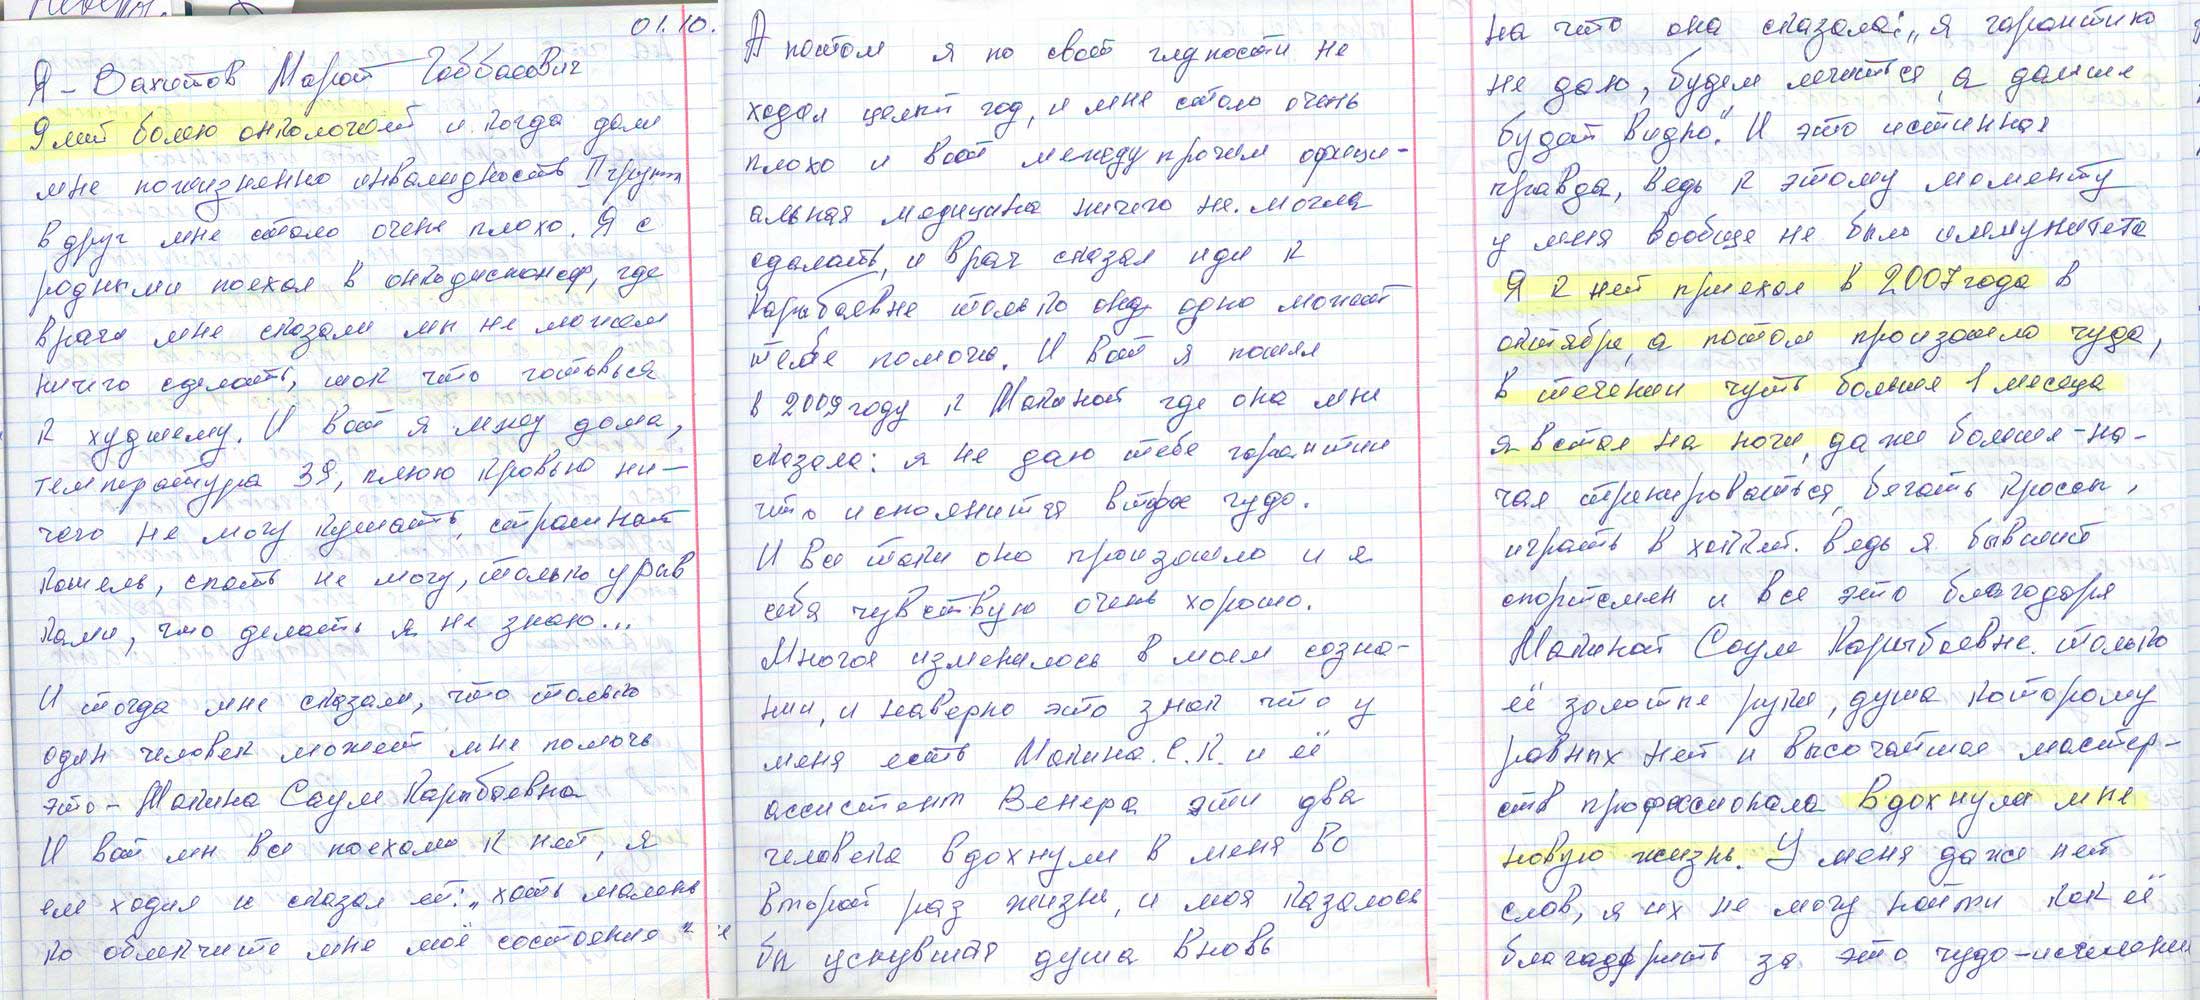 01.10.
Я - Вахитов Марат Габбасович
9 лет болею онкологией и когда дали
мне пожизненно инвалидность II группы
вдруг мне стало очень плохо. Я с
родными поехал в онкодиспансер, где
врачи мне сказали мы не можем
ничего сделать, так что готовься
к худшему. И вот я лежу дома,
температура 39, плюю кровью ни-
чего не могу кушать, страшный
кашель, спать не могу, только урыв
ками, что делать я не знаю...
И тогда мне сказали, что только
один человек может мне помочь
это - Макина Сауле Карыбаевна
И вот мы все поехали к ней, я
еле ходил и сказал ей: „хоть малень
ко облегчите мне моё состояние"
А потом я по своей глупости не
ходил целый год, и мне стало очень
плохо и вот между прочим офици-
альная медицина ничего не могла
сделать, и врач сказал иди к
Карыбаевне только она одна может
тебе помочь. И вот я пошел
в 2009 году к Макиной где она мне
сказала: я не даю тебе гарантии
что исполнится второе чудо.
И все таки оно произошло и я
себя чувствую очень хорошо.
Многое изменилось в моем созна-
нии, и наверно это знак что у
меня есть Макина С.К. и её
ассистент Венера эти два
человека вдохнули в меня во
второй раз жизнь, и моя казалось
бы уснувшая душа вновь
на что она сказала: „я гарантию
не даю, будем лечиться, а дальше
будет видно." И это истинная
правда, ведь к этому моменту
у меня вообще не было иммунитета
Я к ней приехал в 2007 года в
октябре, а потом произошло чудо,
в течении чуть больше 1 месяца
я встал на ноги, даже больше - на-
чал тренироваться, бегать кроссы,
играть в хоккей. Ведь я бывший
спортсмен и все это благодаря
Макиной Сауле Карыбаевне. только
её золотые руки, душа которому
равных нет и высочайшее мастер-
ств профессионала вдохнули мне
новую жизнь. У меня даже нет
слов, я их не могу найти как её
благодарить за это чудо-исцеление